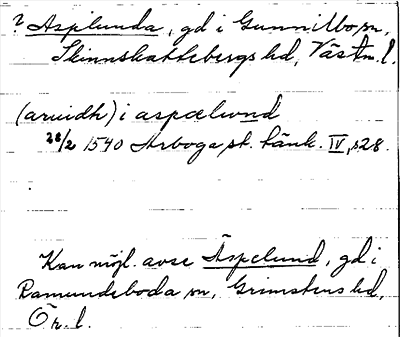 ? Asplunda, gd i Gunnilbo sn,
Skinnskattebergs hd, Västm. l.
(arvidh) i aspælwnd
28/2 1540 Arboga st. tänk. IV, s 28.
Kan möjl. avse Äspelund, gd i
Ramundeboda sn, Grimstens hd,
Ör. l.